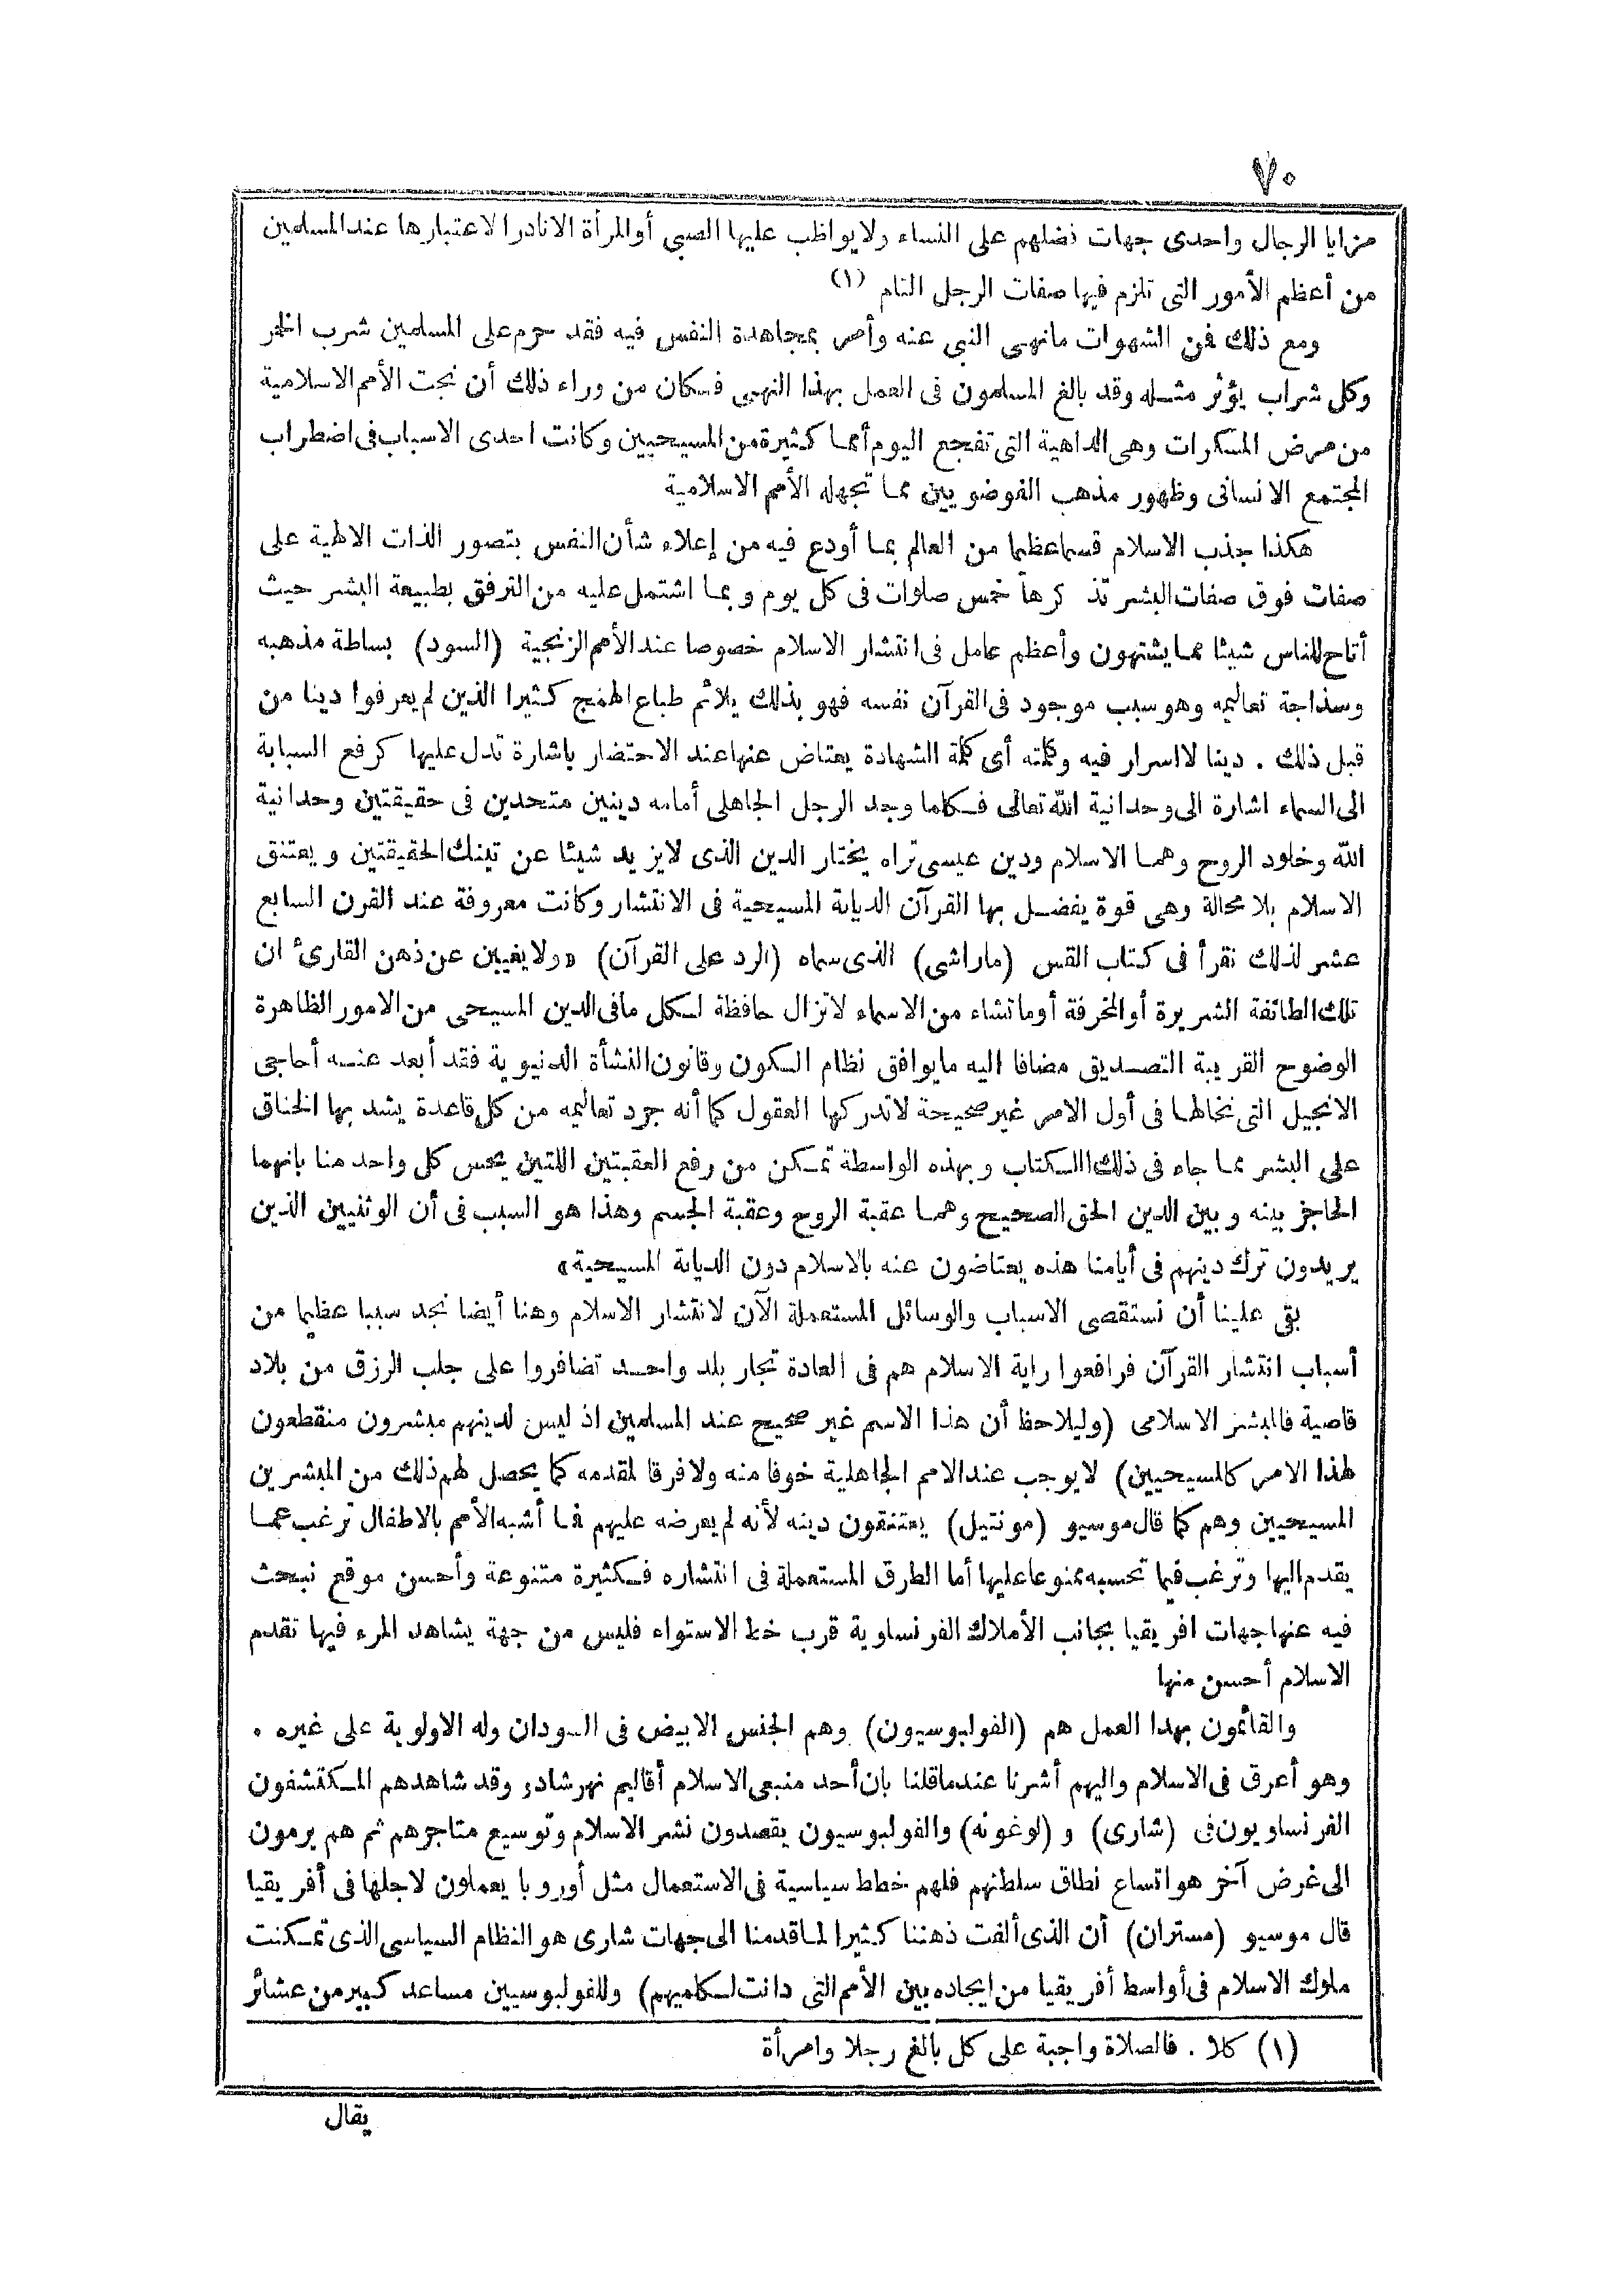 ٧٠
مزايا الرجال واحدى جهات فضلهم على النساء ولا يواظب عليها الصبي أو المرأة الا نادرا لاعتبارها عند المسلمين
من أعظم الأمور التى تلزم فيها صفات الرجل التام (١)
ومع ذلك فمن الشهوات مانهى النبي عنه وأمر بمجاهدة النفس فيه فقد حرم على المسلمين شرب الخمر
وكل شراب يؤثر مثله وقد بالغ المسلمون فى العمل بهذا النهى فكان من وراء ذلك أن نجت الأمم الاسلامية
من مرض المسكرات وهى الداهية التى تفجع اليوم أمما كثيرة من المسيحيين وكانت احدى الاسباب فى اضطراب
المجتمع الانسانى وظهور مذهب الفوضويين مما تجهله الأمم الاسلامية
هكذا جذب الاسلام قسما عظيما من العالم بما أودع فيه من إعلاء شأن النفس بتصور الذات الالهية على
صفات فوق صفات البشر تذكرها خمس صلوات فى كل يوم وبما اشتمل عليه من الترفق بطبيعة البشر حيث
أتاح للناس شيئا مما يشتهون وأعظم عامل فى انتشار الاسلام خصوصا عند الأمم الزنجية (السود) بساطة مذهبه
وسذاجة تعاليمه وهو سبب موجود فى القرآن نفسه فهو بذلك يلائم طباع الهمج كثيرا الذين لم يعرفوا دينا من
قبل ذلك . دينا لا اسرار فيه وكلمته أى كلمة الشهادة يعتاض عنها عند الاحتضار باشارة تدل عليها كرفع السبابة
الى السماء اشارة الى وحدانية الله تعالى فكلما وجد الرجل الجاهلى أمامه دينين متحدين فى حقيقتين وحدانية
الله وخلود الروح وهما الاسلام ودين عيسى تراه يختار الدين الذى لايزيد شيئا عن تينك الحقيقتين ويعتنق
الاسلام بلا محالة وهى قوة يفضل بها القرآن الديانة المسيحية فى الانتشار وكانت معروفة عند القرن السابع
عشر لذلك نقرأ فى كتاب القس (ماراشى) الذى سماه (الرد على القرآن) «ولا يغيبن عن ذهن القارئ ان
تلك الطائفة الشريرة أو المخرفة أوماتشاء من الاسماء لاتزال حافظة لكل مافى الدين المسيحى من الامور الظاهرة
الوضوح القريبة التصديق مضافا اليه مايوافق نظام الكون وقانون النشأة الدنيوية فقد أبعد عنه أحاجى
الانجيل التى نخالها فى أول الامر غير صحيحة لاتدركها العقول كما أنه جرد تعاليمه من كل قاعدة يشد بها الخناق
على البشر مما جاء فى ذلك الكتاب وبهذه الواسطة تمكن من رفع العقبتين اللتين يحس كل واحد منا بانهما
الحاجز بينه وبين الدين الحق الصحيح وهما عقبة الروح وعقبة الجسم وهذا هو السبب فى أن الوثنيين الذين
يريدون ترك دينهم فى أيامنا هذه يعتاضون عنه بالاسلام دون الديانة المسيحية»
بقى علينا أن نستقصى الاسباب والوسائل المستعملة الآن لانتشار الاسلام وهنا أيضا نجد سببا عظيما من
أسباب انتشار القرآن فرافعوا راية الاسلام هم فى العادة تجار بلد واحد تضافروا على جلب الرزق من بلاد
قاصية فالمبشر الاسلامى (وليلاحظ أن هذا الاسم غير صحيح عند المسلمين اذ ليس لدينهم مبشرون منقطعون
لهذا الامر كالمسيحيين) لايوجب عند الامم الجاهلية خوفا منه ولا فرقا لمقدمه كما يحصل لهم ذلك من المبشرين
المسيحيين وهم كما قال موسيو (مونتيل) يعتنقون دينه لأنه لم يعرضه عليهم فما أشبه الأمم بالاطفال ترغب عما
يقدم اليها وترغب فيما تحسبه ممنوعا عليها أما الطرق المستعملة فى انتشاره فكثيرة متنوعة وأحسن موقع نبحث
فيه عنها جهات افريقيا بجانب الأملاك الفرنساوية قرب خط الاستواء فليس من جهة يشاهد المرء فيها تقدم
الاسلام أحسن منها
والقائمون بهذا العمل هم (الفولبوسيون) وهم الجنس الابيض فى السودان وله الاولوية على غيره .
وهو أعرق فى الاسلام واليهم أشرنا عند ماقلنا بان أحد منبعى الاسلام أقاليم نهر شاد وقد شاهدهم المكتشفون
الفرنساويون فى (شارى) و (لوغونه) والفولبوسيون يقصدون نشر الاسلام وتوسيع متاجرهم ثم هم يرمون
الى غرض آخر هو اتساع نطاق سلطتهم فلهم خطط سياسية فى الاستعمال مثل أوروبا يعملون لاجلها فى أفريقيا
قال موسيو (مستران) أن الذى ألفت ذهننا كثيرا لما قدمنا الى جهات شارى هو النظام السياسى الذى تمكنت
ملوك الاسلام فى أواسط أفريقيا من ايجاده بين الأمم التى دانت لكلميهم) وللفولبوسيين مساعد كبير من عشائر
(١) كلا . فالصلاة واجبة على كل بالغ رجلا وامرأة
يقال